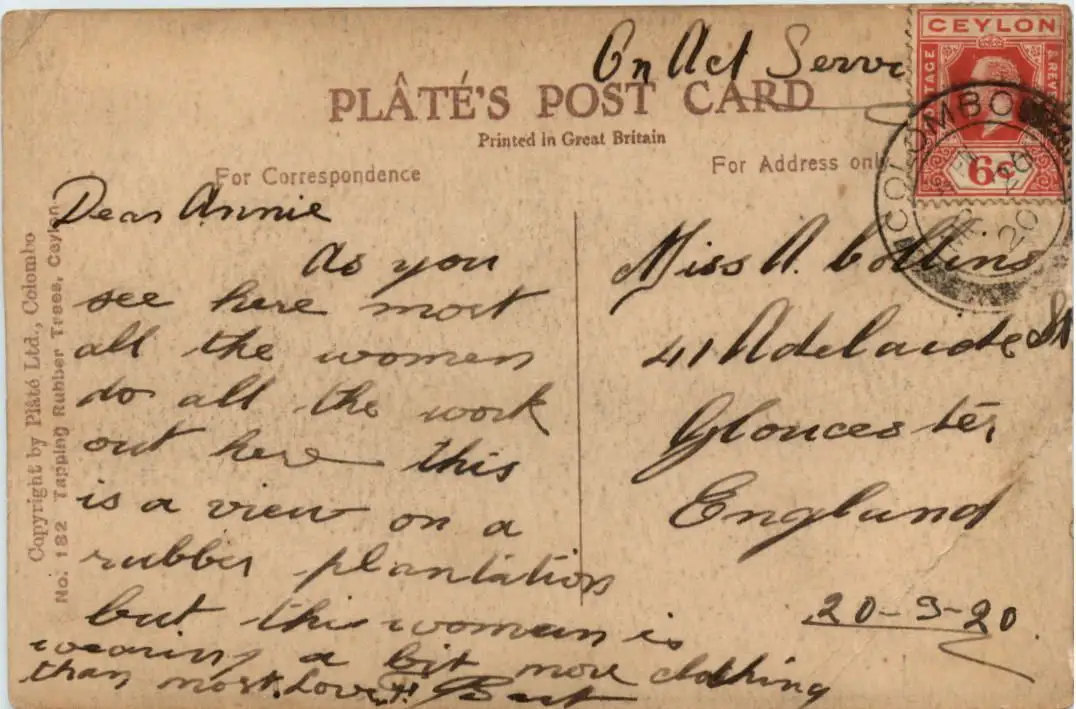 On Act Serv
CEYLON
POSTAGE
& REV
6c
COLOMBO
20
PLÂTÉ'S POST CARD
Printed in Great Britain
For Correspondence
For Address only
Copyright by Plâté Ltd., Colombo
No. 182 Tapping Rubber Trees, Ceylon
Dear Annie
As you
see here most
all the women
do all the work
out here this
is a view on a
rubber plantation
but this woman is
wearing a bit more clothing
than most. Love Bert
Miss A. Collins
41 Adelaide St
Gloucester
England
20-3-20